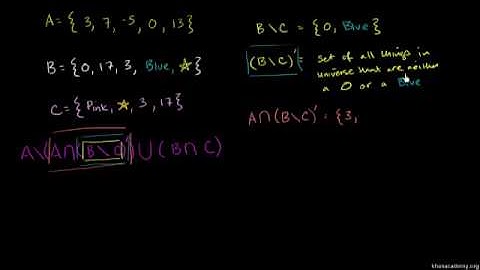 A = { 3, 7, -5, 0, 13 }
B = { 0, 17, 3, Blue, ☆ }
C = { Pink, ☆, 3, 17 }
A \ (A ∩ (B \ C)') ∪ (B ∩ C)
B \ C = { 0, Blue }
(B \ C)' = set of all things in
universe that are neither
a 0 or a Blue
A ∩ (B \ C)' = { 3,
khanacademy.org